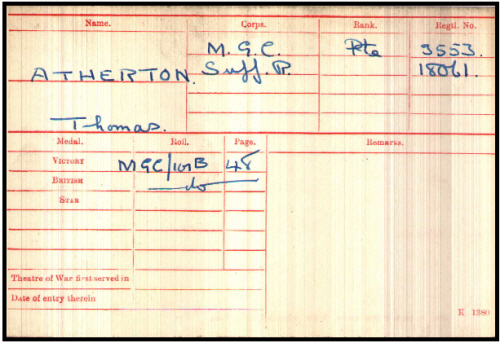 Name. Corps. Rank. Regtl. No.
M.G.C. Pte 3553.
ATHERTON. Suff. R. 18061.
Thomas.
Medal. Roll. Page. Remarks.
VICTORY MGC/101B 48
BRITISH do
STAR
Theatre of War first served in
Date of entry therein
K 1380